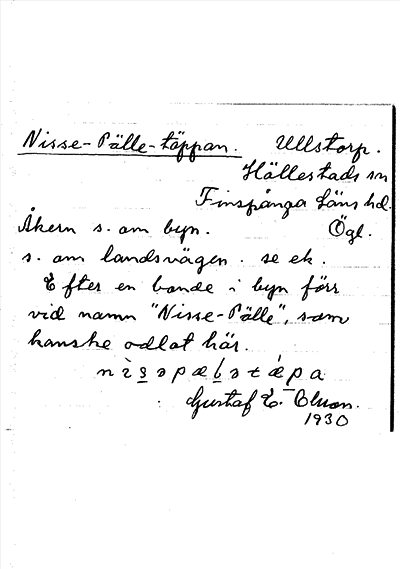 Nisse-Pälle-täppan. Ullstorp.
Hällestads sn
Finspånga läns hd.
Åkern s. om byn. Ögl.
s. om landsvägen. se ek.
Efter en bonde i byn förr
vid namn "Nisse-Pälle", som
kanske odlat här.
Gustaf E.
1930